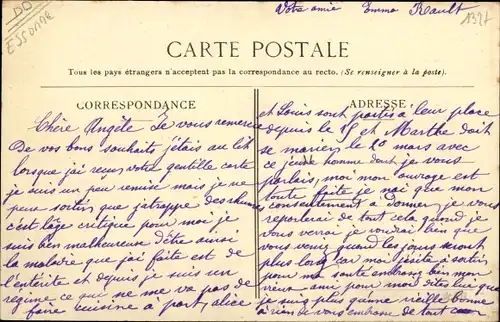 ESSONNE
Votre amie Emma Rault
1327
CARTE POSTALE
Tous les pays étrangers n'acceptent pas la correspondance au recto. (Se renseigner à la poste).
CORRESPONDANCE
Chère Angèle Je vous remercie
De vos bons souhaits j'étais au lit
lorsque j'ai reçu votre gentille carte
je suis un peu remise mais je ne
peux sortir que j'attrappe des rhumes
c'est l'âge critique pour moi je
suis bien malheureuse d'être ainsi
la maladie que j'ai faite est de
l'entérite et depuis je suis un
régime ce qui ne me va pas de
faire cuisine à part, alice
ADRESSE
et Louis sont partis à leur place
depuis le 15 et Marthe doit
se marier le 20 mars avec
ce jeune homme dont je vous
parlais, moi mon ouvrage est
toute faite je n'ai que mon
consentement à donner, je vous
reporterai de tout cela quand je
vous verrai je voudrai bien que
vous veniez quand les jours seront
plus long car moi j'hésite à sortir
pour ma santé embrass bien mon
vieux ami pour moi dites lui que
je suis plus qu'une vieille bonne
à rien de vous embrasse de tout cœur